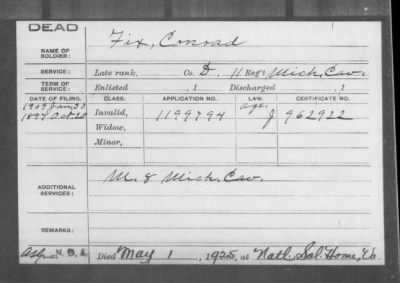 DEAD
NAME OF SOLDIER: Fix, Conrad
SERVICE: Late rank, Co. D. 11 Reg't Mich. Cav.
TERM OF SERVICE: Enlisted , 1 Discharged , 1
DATE OF FILING. CLASS. APPLICATION NO. LAW. CERTIFICATE NO.
1909 Jan. 30
1897 Oct. 28 Invalid, 1199794 age. J 962922
Widow,
Minor,
ADDITIONAL SERVICES: M. 8 Mich. Cav.
REMARKS:
Died May 1, 1925, at Natl. Sol. Home, Va.